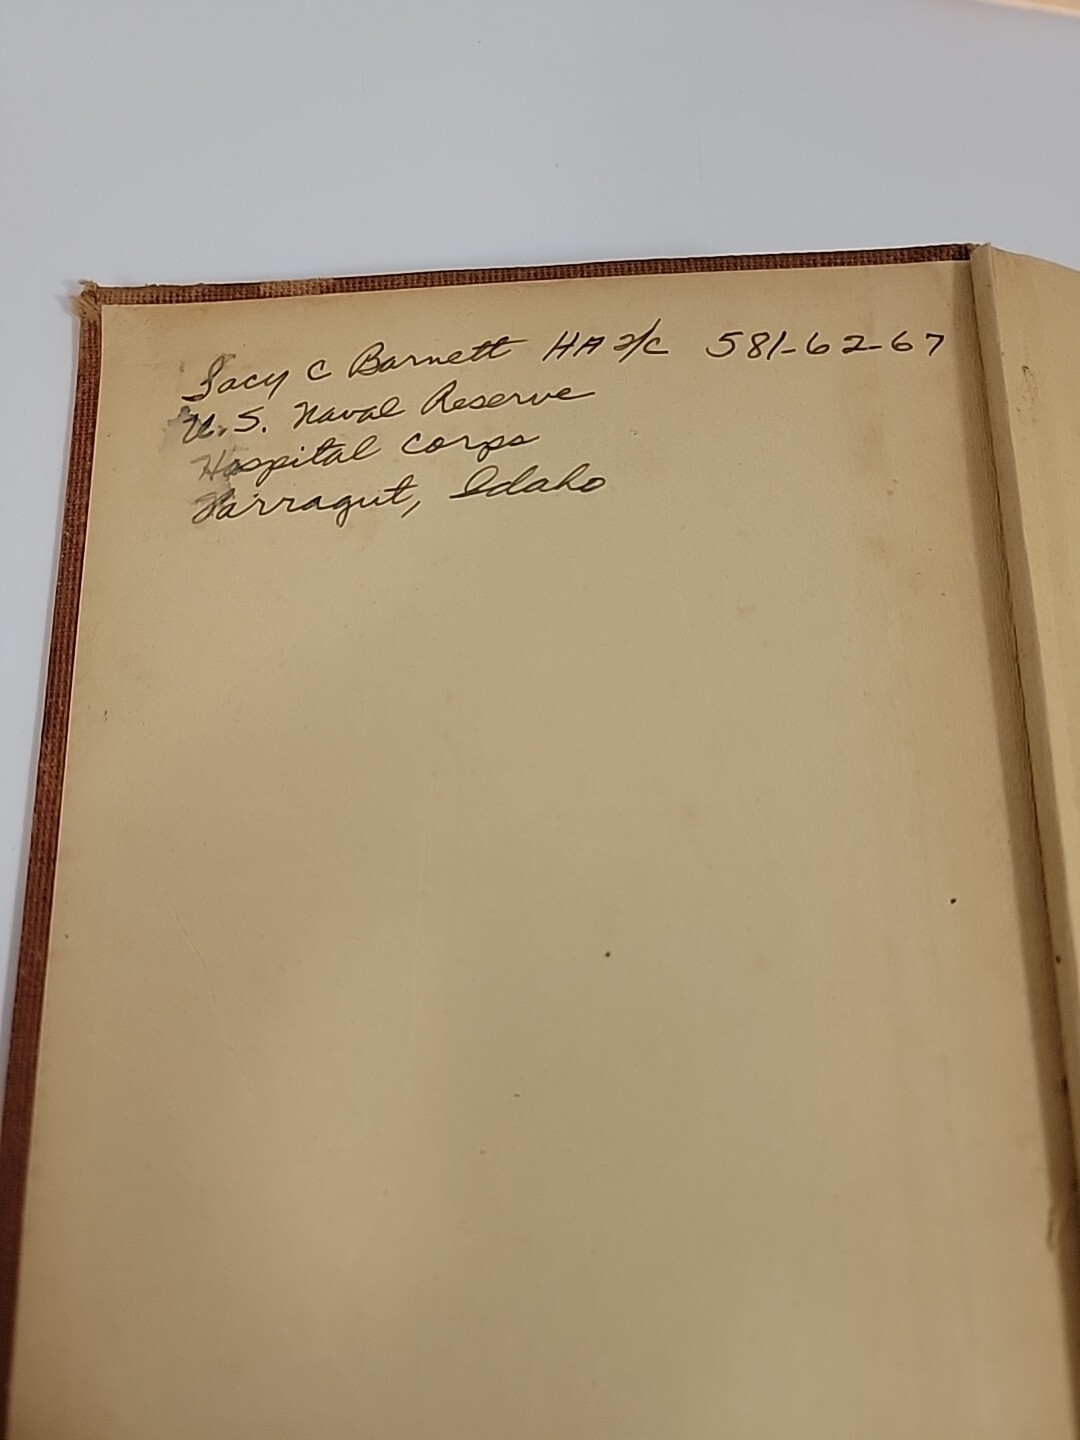 Lacy C Barnett HA 2/c 581-62-67
U.S. Naval Reserve
Hospital Corps
Farragut, Idaho